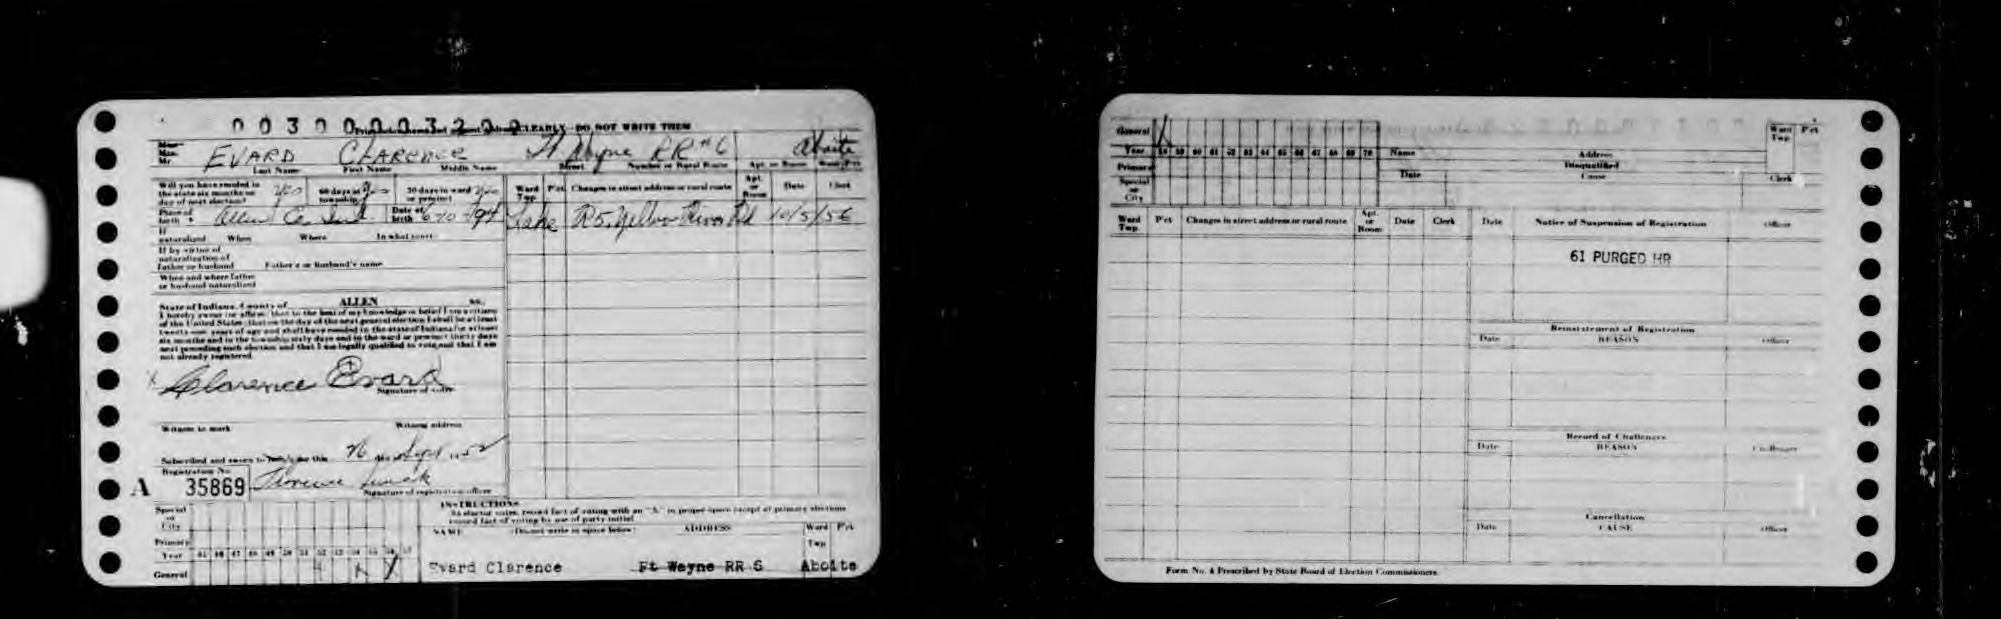 CLEARLY - DO NOT WRITE THEM
Miss
Mrs.
Mr.
EVARD CLARENCE Ft Wayne RR #6 Aboite
Last Name First Name Middle Name Street Number or Rural Route Apt. or Room Ward Pct
Will you have resided in the state six months on day of next election? yes 60 days in township? yes 30 days in ward or precinct yes
Ward Twp Pct Changes in street address or rural route Apt. or Room Date Clerk
Place of birth Allen Co Ind Date of birth 6 20 - 94
Lake R5, Yellow River Rd 10/5/56
If naturalized When Where In what court
If by virtue of naturalization of father or husband Father's or husband's name
When and where father or husband naturalized
State of Indiana, County of ALLEN ss.
I hereby swear (or affirm) that to the best of my knowledge or belief I am a citizen
of the United States; that on the day of the next general election I shall be at least
twenty-one years of age and shall have resided in the state of Indiana for at least
six months and in the township sixty days and in the ward or precinct thirty days
next preceding such election and that I am legally qualified to vote, and that I am
not already registered.
X Clarence Evard
Signature of voter
Witness to mark Witness address
Subscribed and sworn to before me this Sept 1952
Registration No.
A 35869 Florence
Signature of registration officer
INSTRUCTIONS
As elector votes, record fact of voting with an "X" in proper space except at primary elections
record fact of voting by use of party initial
Special or City
Primary
Year 45 46 47 48 49 50 51 52 53 54 55 56 57
General X X
NAME (Do not write in space below) ADDRESS Ward Twp Pct
Evard Clarence Ft Wayne RR 6 Aboite
General X
Year 58 59 60 61 62 63 64 65 66 67 68 69 70
Primary
Special or City
Name Address Ward Twp Pct
Disqualified
Date Cause Clerk
Ward Twp Pct Changes in street address or rural route Apt. or Room Date Clerk
Date Notice of Suspension of Registration Officer
61 PURGED HR
Reinstatement of Registration
Date REASON Officer
Record of Challenges
Date REASON Challenger
Cancellation
Date CAUSE Officer
Form No. 4 Prescribed by State Board of Election Commissioners